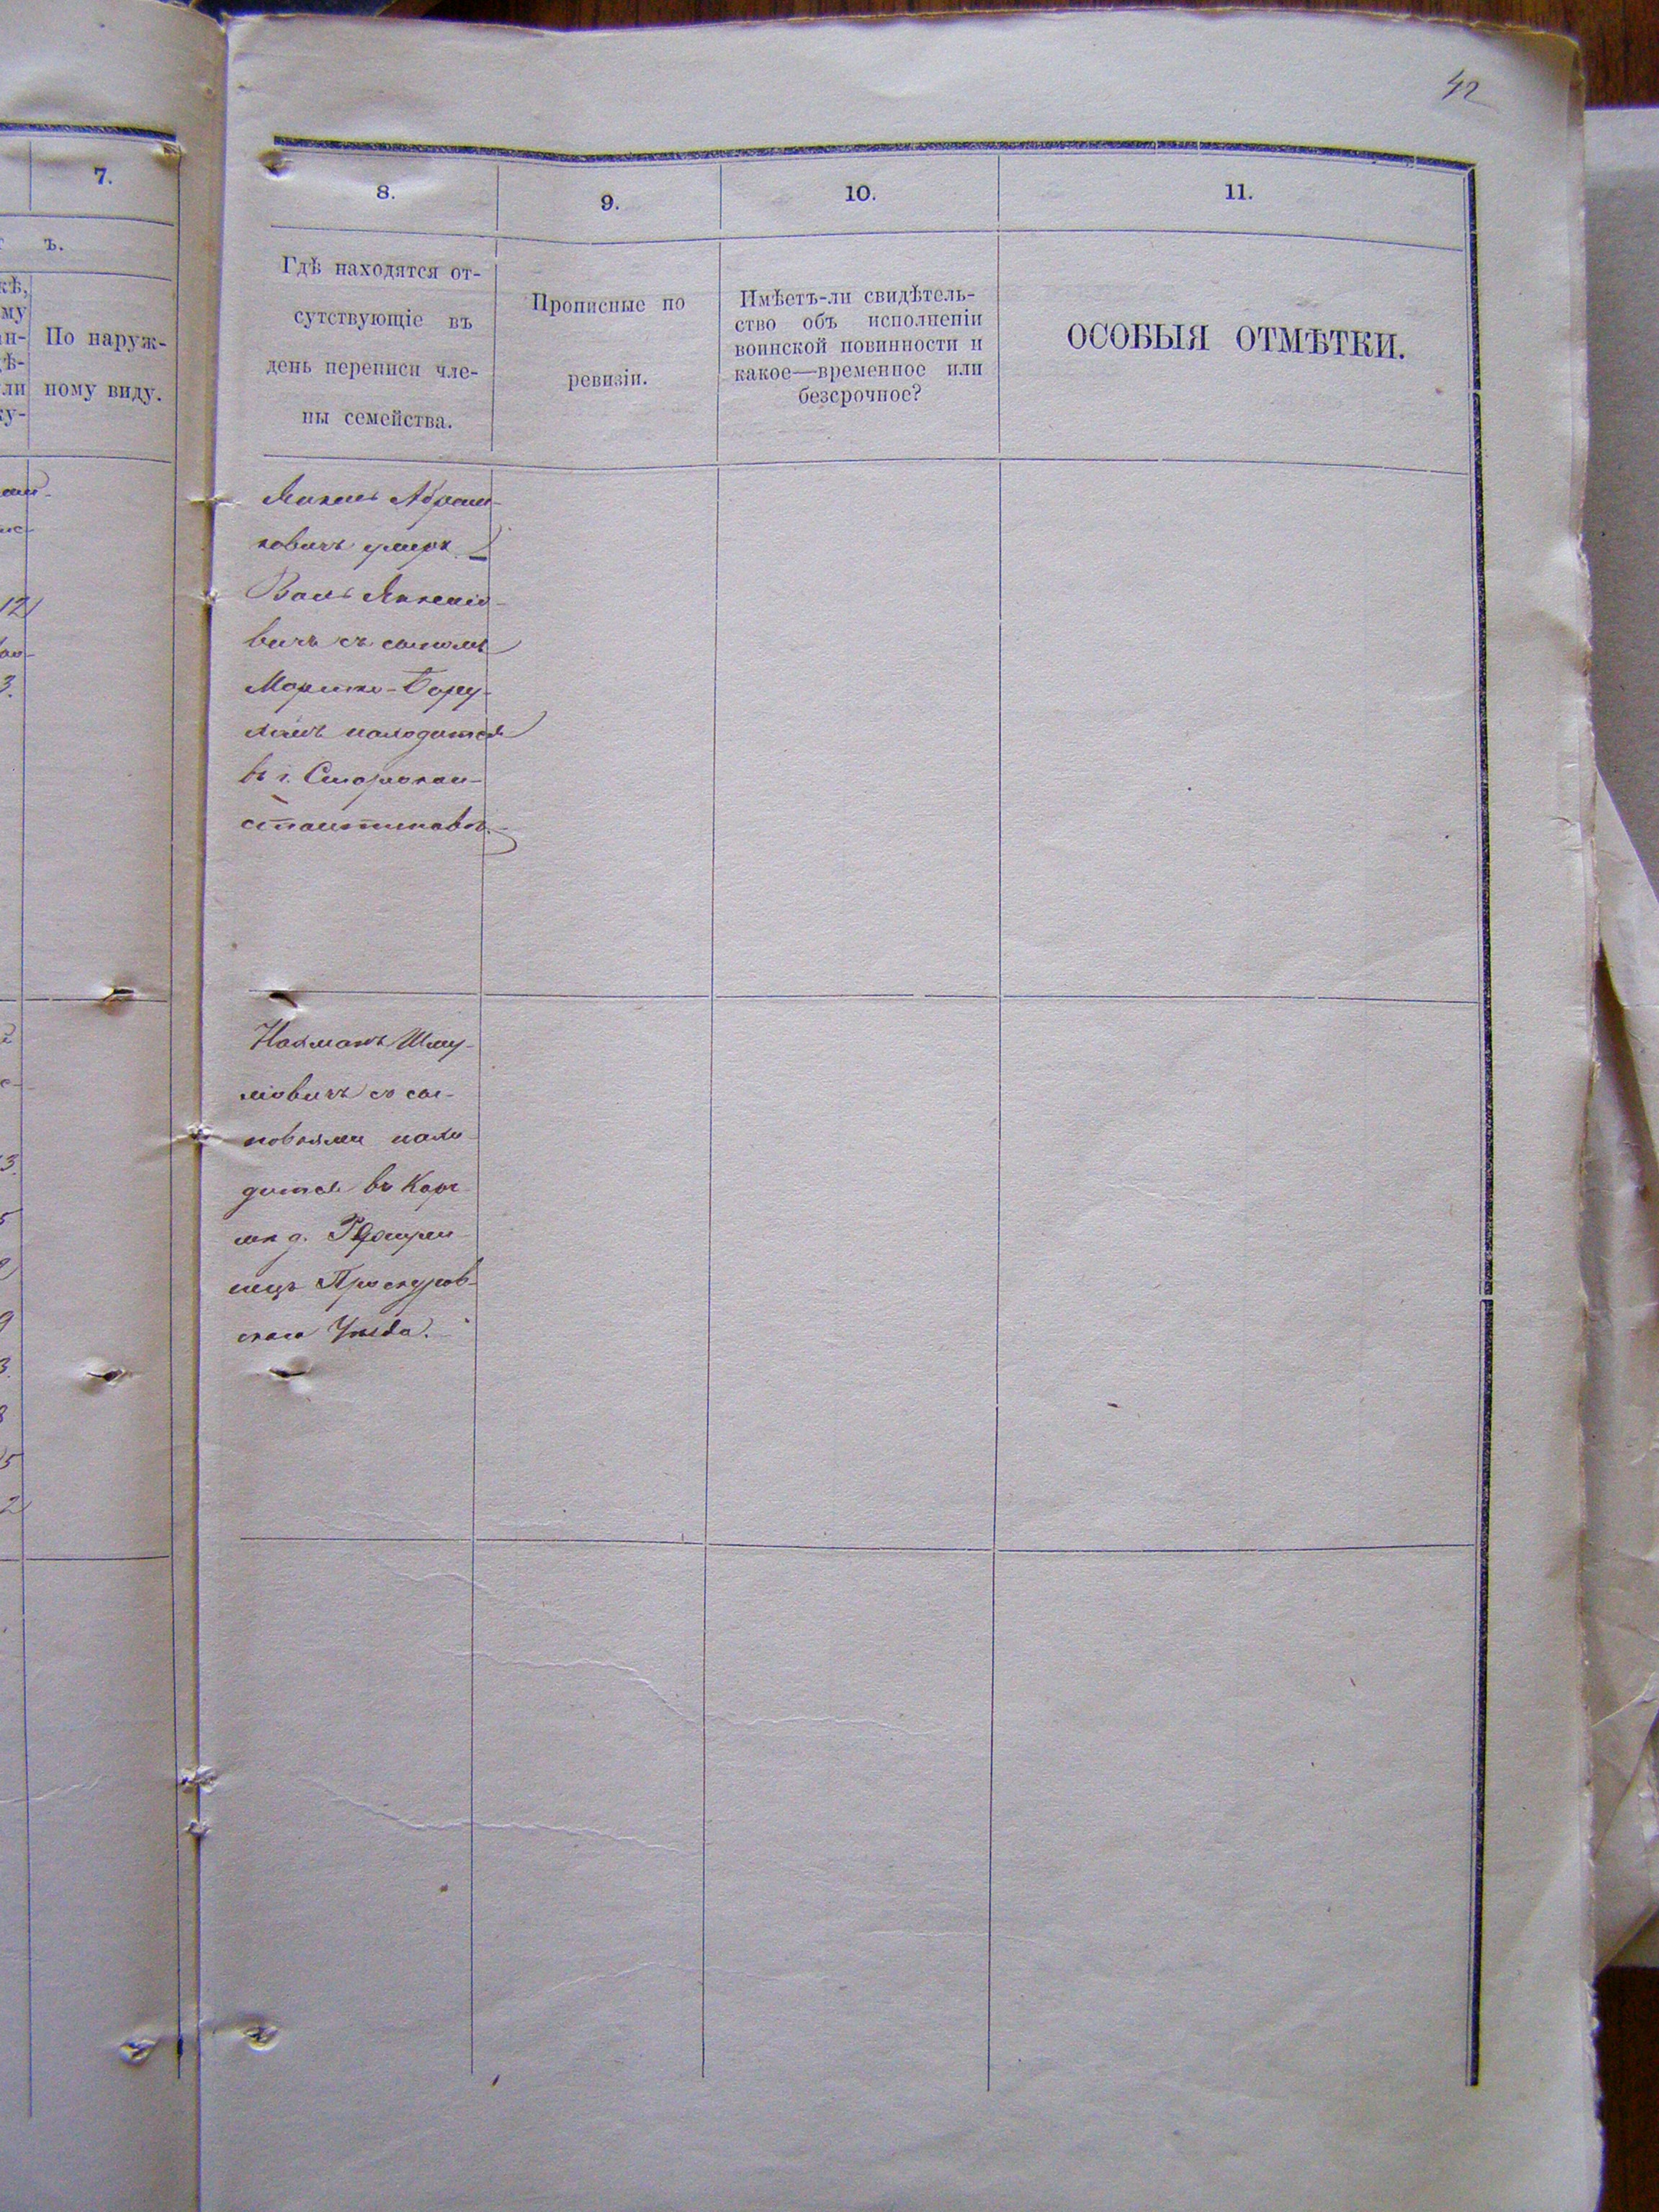 42
7.
ъ.
По наруж-
ному виду.
8.
9.
10.
11.
Гдѣ находятся от-
сутствующіе въ
день переписи чле-
ны семейства.
Прописные по
ревизіи.
Имѣетъ-ли свидѣтель-
ство объ исполненіи
воинской повинности и
какое—временное или
безсрочное?
ОСОБЫЯ ОТМѢТКИ.
Абрам-
ковичъ умеръ
вичъ съ сыномъ
Мортко-Бору-
хомъ находится
въ г. Старокон-
стантиновѣ.
Нахманъ Шму-
лiовичъ съ сы-
новьями нахо-
дится въ Корч-
мѣ д.
Проскуров-
скаго Уѣзда.